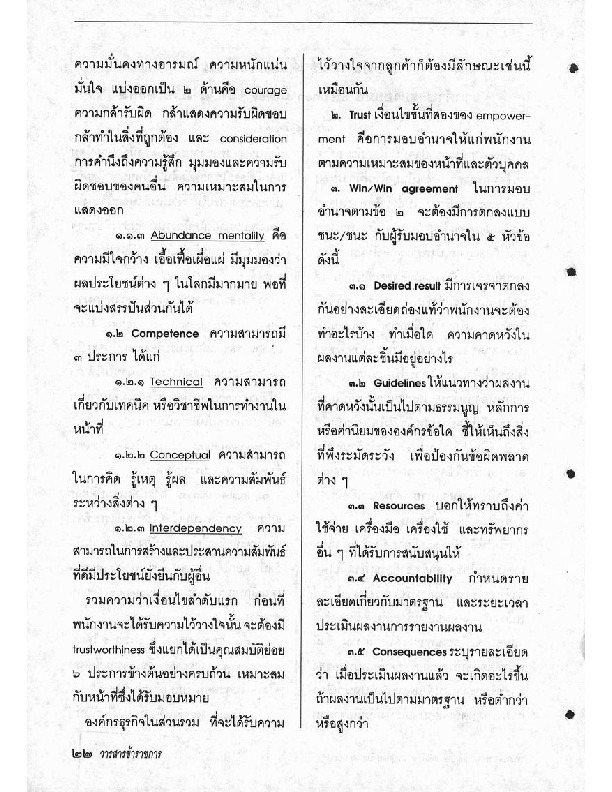 ความมั่นคงทางอารมณ์ ความหนักแน่น
มั่นใจ แบ่งออกเป็น ๒ ด้านคือ courage
ความกล้ารับผิด กล้าแสดงความรับผิดชอบ
กล้าทำในสิ่งที่ถูกต้อง และ consideration
การคำนึงถึงความรู้สึก มุมมองและความรับ
ผิดชอบของคนอื่น ความเหมาะสมในการ
แสดงออก
๑.๑.๓ Abundance mentality คือ
ความมีใจกว้าง เอื้อเฟื้อเผื่อแผ่ มีมุมมองว่า
ผลประโยชน์ต่าง ๆ ในโลกมีมากมาย พอที่
จะแบ่งสรรปันส่วนกันได้
๑.๒ Competence ความสามารถมี
๓ ประการ ได้แก่
๑.๒.๑ Technical ความสามารถ
เกี่ยวกับเทคนิค หรือวิชาชีพในการทำงานใน
หน้าที่
๑.๒.๒ Conceptual ความสามารถ
ในการคิด รู้เหตุ รู้ผล และความสัมพันธ์
ระหว่างสิ่งต่าง ๆ
๑.๒.๓ Interdependency ความ
สามารถในการสร้างและประสานความสัมพันธ์
ที่ดีมีประโยชน์ยั่งยืนกับผู้อื่น
รวมความว่าเงื่อนไขลำดับแรก ก่อนที่
พนักงานจะได้รับความไว้วางใจนั้น จะต้องมี
trustworthiness ซึ่งแยกได้เป็นคุณสมบัติย่อย
๖ ประการข้างต้นอย่างครบถ้วน เหมาะสม
กับหน้าที่ซึ่งได้รับมอบหมาย
องค์กรธุรกิจในส่วนรวม ที่จะได้รับความ
ไว้วางใจจากลูกค้าก็ต้องมีลักษณะเช่นนี้
เหมือนกัน
๒. Trust เงื่อนไขขั้นที่สองของ empower-
ment คือการมอบอำนาจให้แก่พนักงาน
ตามความเหมาะสมของหน้าที่และตัวบุคคล
๓. Win/Win agreement ในการมอบ
อำนาจตามข้อ ๒ จะต้องมีการตกลงแบบ
ชนะ/ชนะ กับผู้รับมอบอำนาจใน ๕ หัวข้อ
ดังนี้
๓.๑ Desired result มีการเจรจาตกลง
กันอย่างละเอียดถ่องแท้ว่าพนักงานจะต้อง
ทำอะไรบ้าง ทำเมื่อใด ความคาดหวังใน
ผลงานแต่ละชิ้นมีอยู่อย่างไร
๓.๒ Guidelines ให้แนวทางว่าผลงาน
ที่คาดหวังนั้นเป็นไปตามธรรมนูญ หลักการ
หรือค่านิยมขององค์กรข้อใด ชี้ให้เห็นถึงสิ่ง
ที่พึงระมัดระวัง เพื่อป้องกันข้อผิดพลาด
ต่าง ๆ
๓.๓ Resources บอกให้ทราบถึงค่า
ใช้จ่าย เครื่องมือ เครื่องใช้ และทรัพยากร
อื่น ๆ ที่ได้รับการสนับสนุนให้
๓.๔ Accountability กำหนดราย
ละเอียดเกี่ยวกับมาตรฐาน และระยะเวลา
ประเมินผลงานการรายงานผลงาน
๓.๕ Consequences ระบุรายละเอียด
ว่า เมื่อประเมินผลงานแล้ว จะเกิดอะไรขึ้น
ถ้าผลงานเป็นไปตามมาตรฐาน หรือต่ำกว่า
หรือสูงกว่า
๒๒ วารสารข้าราชการ